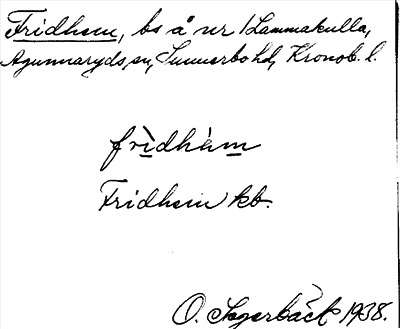 Fridhem, bs å nr 1 Lammakulla,
Agunnaryds sn, Sunnerbo hd, Kronob. l.
frìdhèm
Fridhem kb.
O. Sagerbäck 1938.